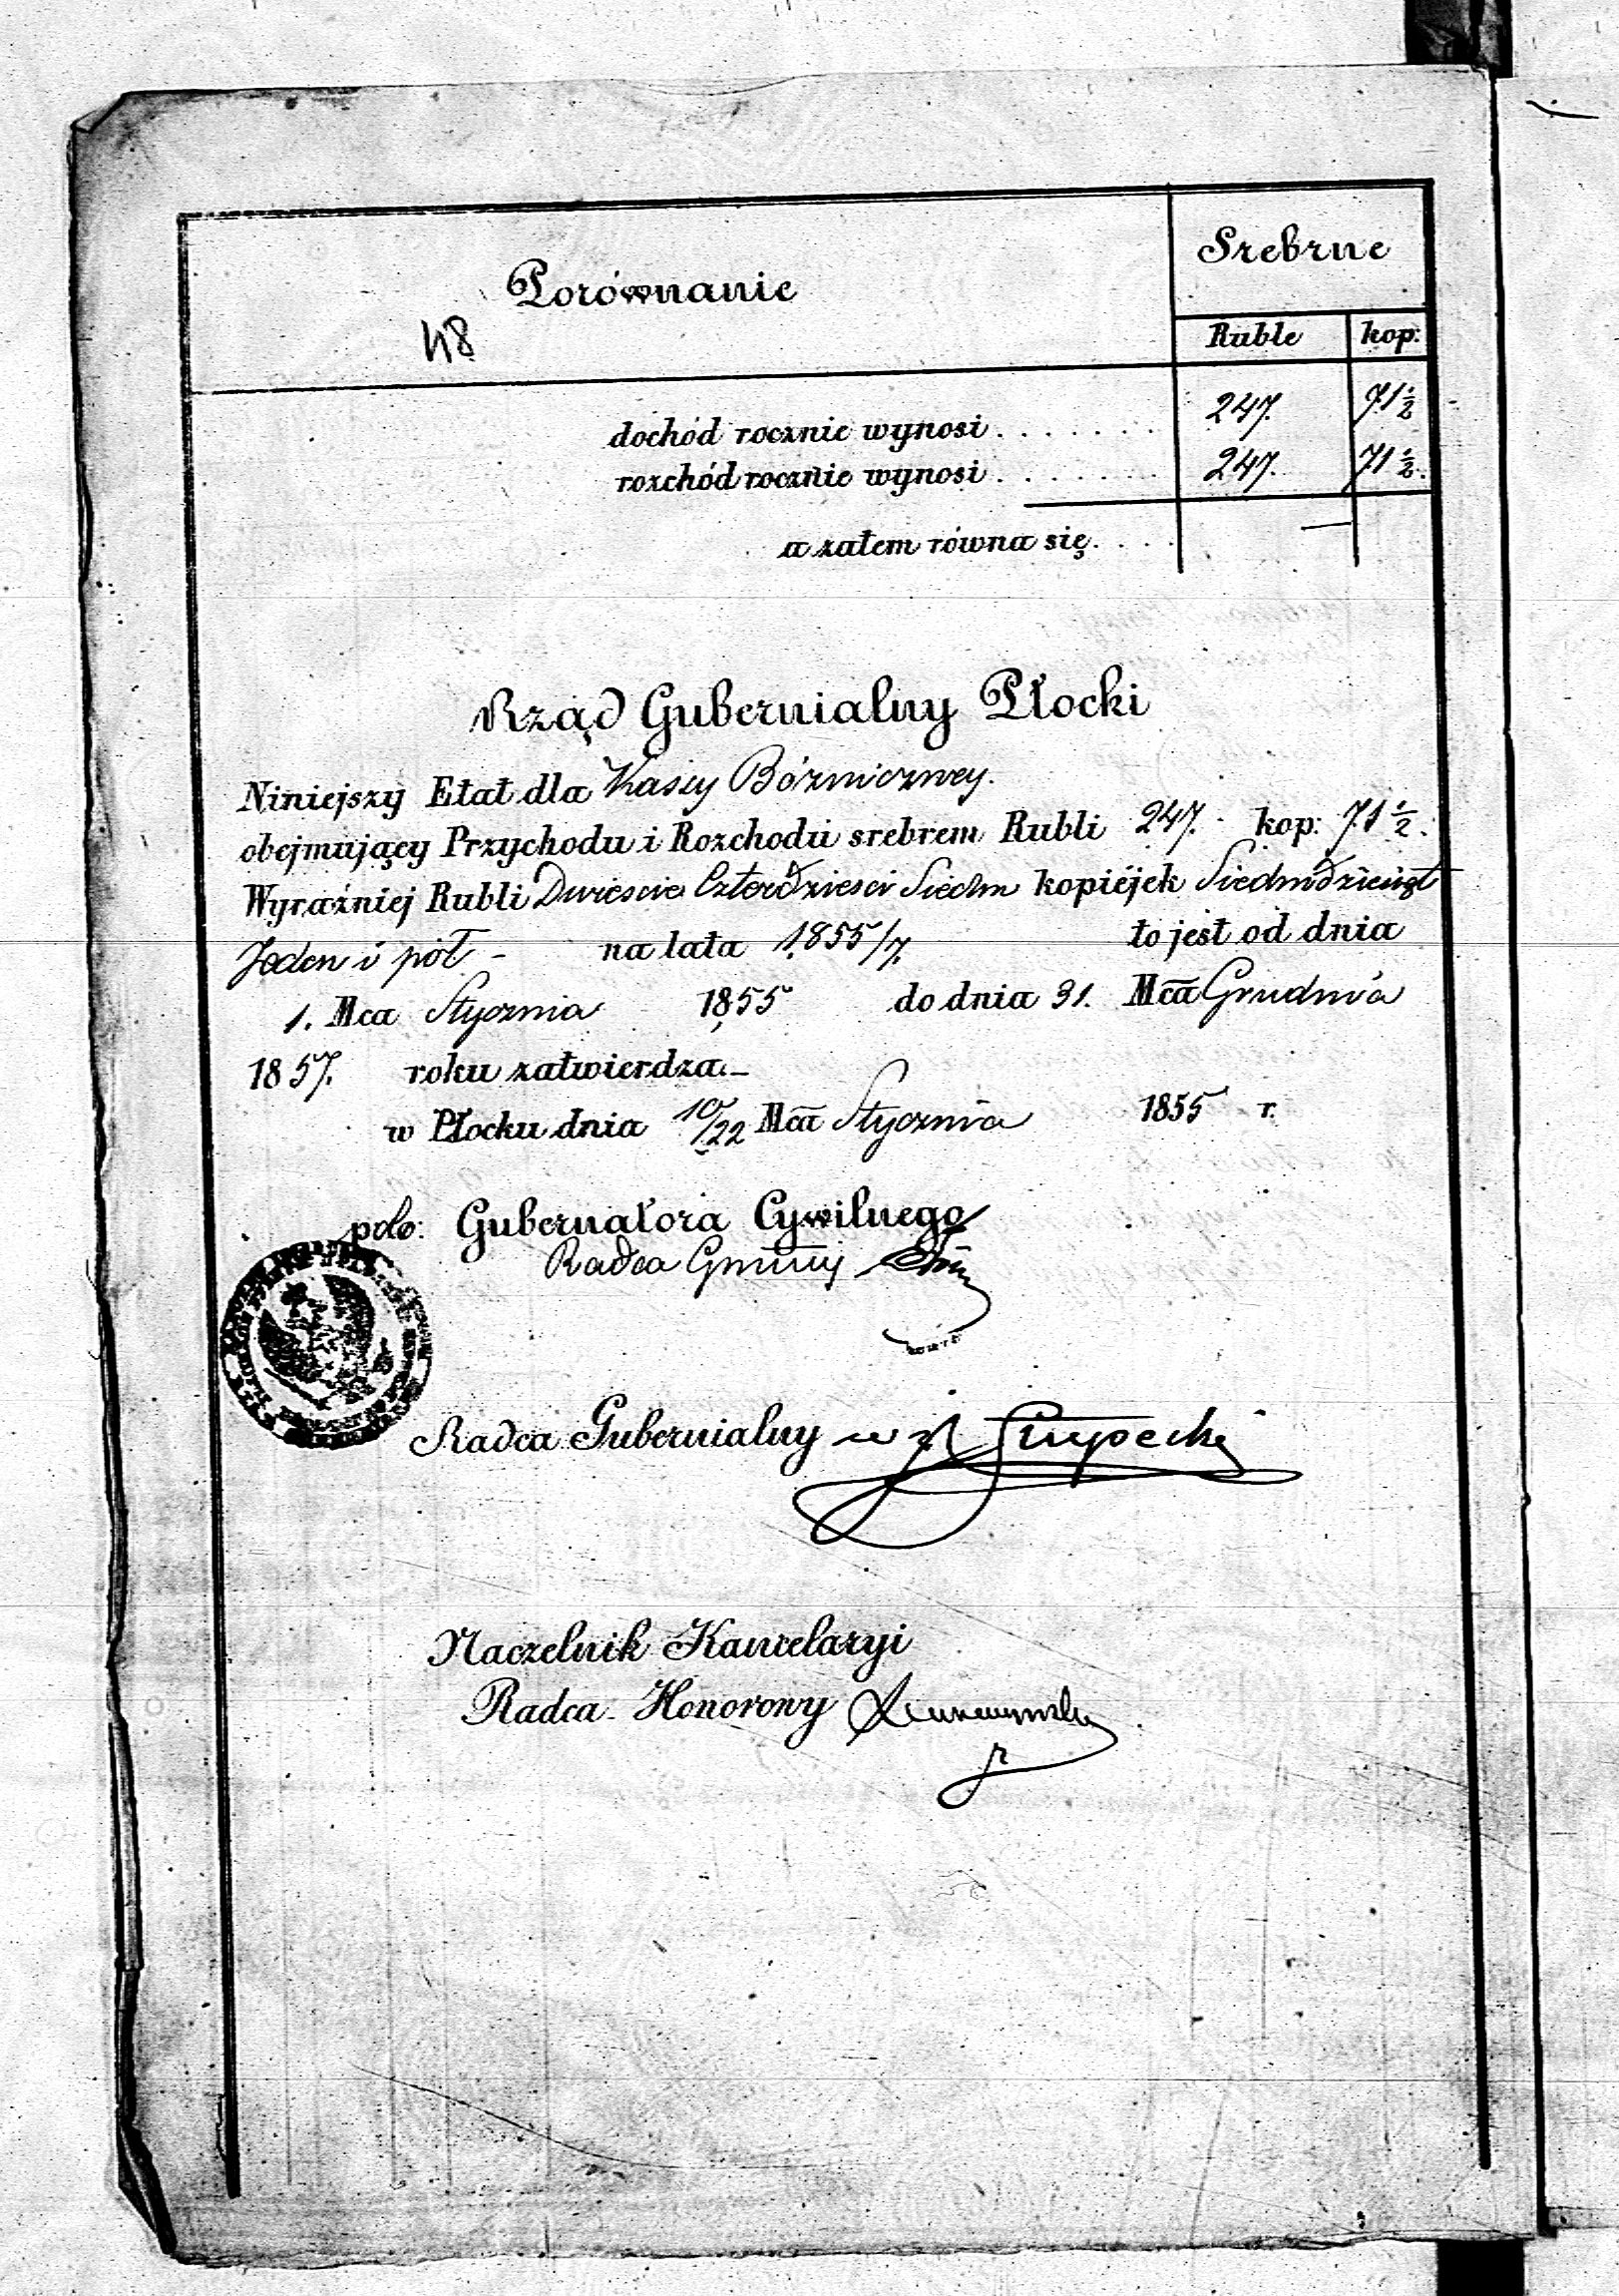 Porównanie
Srebrne
48
Ruble kop:
dochód rocznie wynosi . . . . . . . 247. 71 1/2
rozchód rocznie wynosi . . . . . . . 247. 71 1/2.
a zatem równa się. . . . —
Rząd Gubernialny Płocki
Niniejszy Etat dla Kassy Bóżniczney.
obejmujący Przychodu i Rozchodu srebrem Rubli 247. kop: 71 1/2.
Wyraźniej Rubli Dwieście Czterdzieści Siedm kopiéjek Siedmdziesiąt
Jeden i pół - na lata 1855/7. to jest od dnia
1. Mca Stycznia 1855 do dnia 31. Mca Grudnia
1857. roku zatwierdza.—
w Płocku dnia 10/22 Mca Stycznia 1855 r.
Gubernatora Cywilnego
Radca
Radca Gubernialny
Naczelnik Kancelaryi
Radca Honorowy